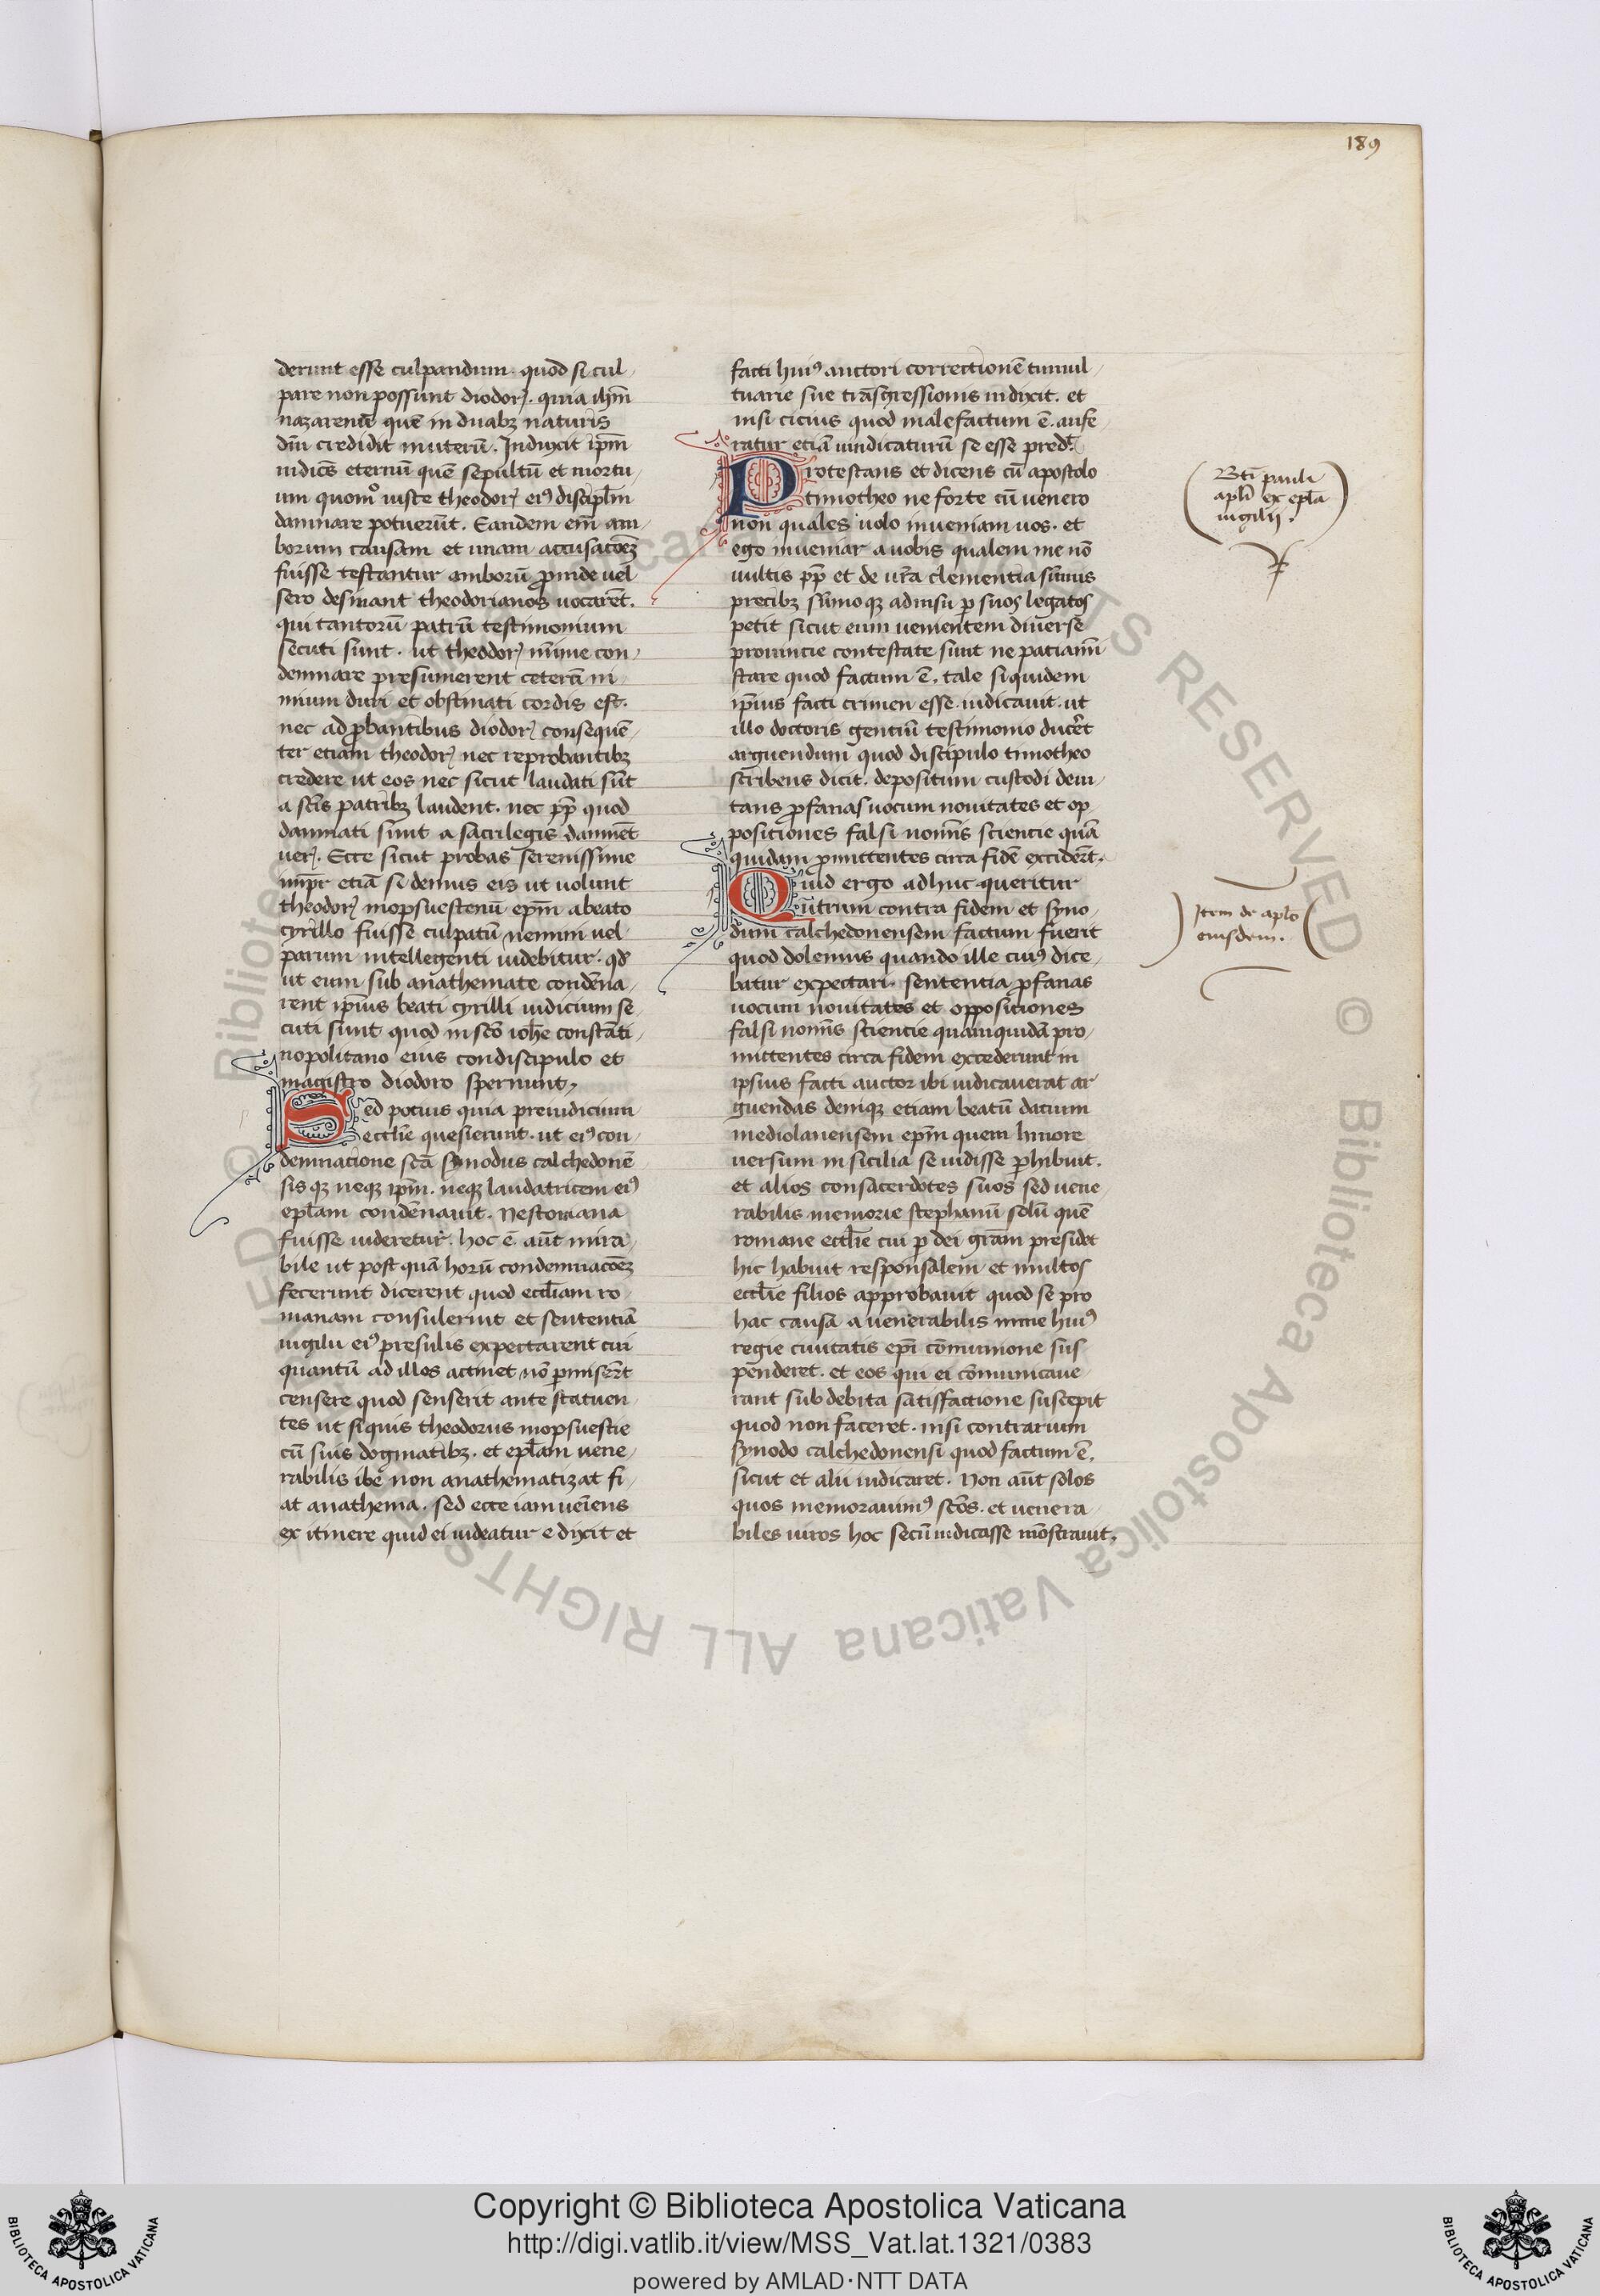 189
derunt esse culpandum. quod si cul-
pare non possunt diodorꝰ. quia ihm̄
nazarenū quē in duabꝫ naturis
dm̄ credidit in uterū. Induxit ip̄m
iudicēs eternū quē sepultū et mortu-
um quomͦ iuste theodorꝰ eiꝰ discipl̄m
damnare potuerūt. Eandem em̄ am-
borum causam et unam accusacōeꝫ
fuisse testantur amborū ꝓinde uel
sero desinant theodorianos uocarēt.
qui tantorū patrū testimonium
secuti sunt. ut theodorꝰ mīme con-
demnare presumerent ceterā ni-
mium duri et obstinati cordis est.
nec adꝓbantibus diodorꝰ consequē-
ter etiam theodorꝰ nec reprobantibꝫ
credere ut eos nec sicut laudati sūt
a sc̄is patribꝫ laudent. nec ꝓp̄ quod
damnati sunt a sacrilegis damnēt
uerꝰ. Ecce sicut probas serenissime
imp̄r etiā si demus eis ut uolunt
theodorꝰ mopsuestenū ep̄m a beato
cyrillo fuisse culpatū nemini uel
parum intellegenti uidebitur. qd̓
ut eum sub anathemate condēna-
rent ip̄ius beati cyrilli iudicium se-
cuti sunt quod in sc̄o ioh̄e constāti-
nopolitano eius condiscipulo et
magistro diodoro spernunt,
Sed potius quia preiudicium
eccl̄ie quesierunt. ut eiꝰ con-
demnatione sc̄a synodus calchedonē-
sis qꝫ neqꝫ ip̄m. neqꝫ laudatricem eiꝰ
epl̄am condēnauit. Nestoriana
fuisse uideretur. hoc ē aūt mira-
bile ut post quā horū condemnacōeꝫ
fecerunt dicerent quod eccl̄iam ro-
manam consulerint et sententiā
uigilii eiꝰ presulis expectarent cui
quantū ad illos actinet nō ꝑmisēt
censere quod senserit ante statuen-
tes ut si quis theodorus mopsuestie
cū suis dogmatibꝫ. et epl̄am uene-
rabilis ibē non anathematizat fi-
at anathema. sed ecce iam ueīens
ex itinere quid ei uideatur edixit et
facti huiꝰ auctori correctionē tumul-
tuarie sue trāsgressionis indixit. et
nisi cicius quod malefactum ē. aufe-
ratur etiā uindicaturū se esse pred̄t.
Protestans et dicens cū apostolo
timotheo ne forte cū uenero
non quales uolo inueniam uos. et
ego inueniar a uobis qualem me nō
uultis ꝓp̄ et de ur̄a clementia sūmis
precibꝫ sūmoqꝫ adnisu ꝑ suos legatos
petit sicut eum uenientem diuerse
prouincie contestate sunt ne patiamī
stare quod factum ē. tale siquidem
ip̄ius facti crimen esse iudicauit. ut
illo doctoris gentiū testimonio ducēt
arguendum quod discipulo timotheo
scribens dicit. depositum custodi deui-
tans ꝓfanas uocum nouitates et op-
positiones falsi nomīs scientie quā
quidam ꝓmittentes circa fidē exciderūt.
Quid ergo adhuc queritur
utrum contra fidem et syno-
dum calchedonensem factum fuerit
quod dolemus quando ille cuiꝰ dice-
batur expectari. sententia ꝓfanas
uocum nouitates et oppositiones
falsi nomīs scientie quam quidā pro-
mittentes circa fidem excederunt in
ipsius facti auctor ibi iudicauerat ar
guendas deniqꝫ etiam beatū datium
mediolanensem ep̄m quem hinore
uersum in sicilia se uidisse ꝑhibuit.
et alios consacerdotes suos sed uene-
rabilis memorie stephanū solū quē
romane eccl̄ie cui ꝑ dei gr̄am presidet
hic habuit responsalem et multos
eccl̄ie filios approbauit quod se pro
hac causa a uenerabilis mine huiꝰ
regie ciuitatis ep̄i cōmunione sus-
penderet. et eos qui ei cōmunicaue
rant sub debita satisfactione suscepit
quod non faceret. nisi contrarium
synodo calchedonensi quod factum ē.
sicut et alii iudicaret. Non aūt solos
quos memorauimꝰ sc̄os. et uenera-
biles uiros hoc secū iudicasse mōstrauit.
Bt̄i pauli
apl̄i ex epl̄a
uigilij.
Item de apl̄o
eiusdem.
© Biblioteca Apostolica Vaticana ALL RIGHTS RESERVED
Copyright © Biblioteca Apostolica Vaticana
http://digi.vatlib.it/view/MSS_Vat.lat.1321/0383
powered by AMLAD·NTT DATA
BIBLIOTECA APOSTOLICA VATICANA
BIBLIOTECA APOSTOLICA VATICANA